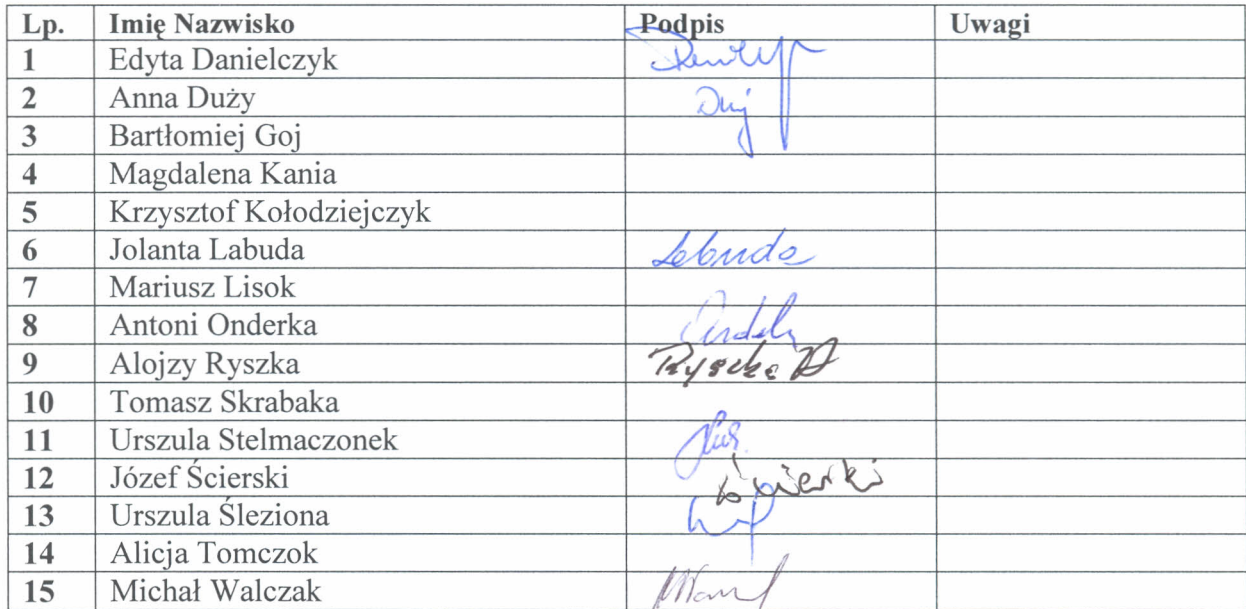 Lp. Imię Nazwisko Podpis Uwagi
1 Edyta Danielczyk
2 Anna Duży
3 Bartłomiej Goj
4 Magdalena Kania
5 Krzysztof Kołodziejczyk
6 Jolanta Labuda Labuda
7 Mariusz Lisok
8 Antoni Onderka
9 Alojzy Ryszka Ryszka A
10 Tomasz Skrabaka
11 Urszula Stelmaczonek
12 Józef Ścierski Ścierski
13 Urszula Śleziona
14 Alicja Tomczok
15 Michał Walczak